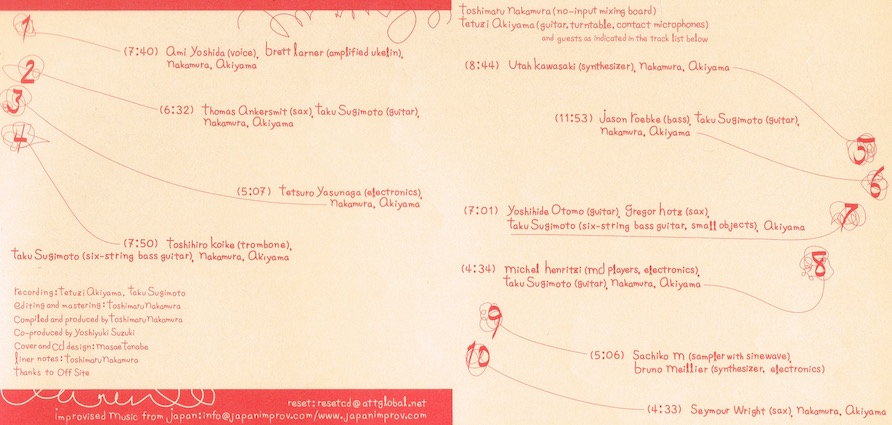 1
(7:40) Ami Yoshida (voice), brett larner (amplified ukelin),
nakamura, Akiyama
2
(6:32) thomas Ankersmit (sax), taku Sugimoto (guitar),
nakamura, Akiyama
3
(5:07) tetsuro yasunaga (electronics),
nakamura, Akiyama
4
(7:50) toshihiro koike (trombone),
taku Sugimoto (six-string bass guitar), nakamura, Akiyama
recording: tetuzi Akiyama, taku Sugimoto
editing and mastering: toshimaru nakamura
Compiled and produced by toshimaru nakamura
Co-produced by Yoshiyuki Suzuki
Cover and cd design: masae tanabe
liner notes: toshimaru nakamura
thanks to Off Site
reset: resetcd@attglobal.net
improvised music from japan: info@japanimprov.com/www.japanimprov.com
toshimaru nakamura (no-input mixing board)
tetuzi Akiyama (guitar, turntable, contact microphones)
and guests as indicated in the track list below
(8:44) Utah kawasaki (synthesizer), nakamura, Akiyama
5
(11:53) jason roebke (bass), taku Sugimoto (guitar),
nakamura, Akiyama
6
(7:01) Yoshihide Otomo (guitar), gregor hotz (sax),
taku Sugimoto (six-string bass guitar, small objects), Akiyama
7
(4:34) michel henritzi (md players, electronics),
taku Sugimoto (guitar), nakamura, Akiyama
8
9
(5:06) Sachiko m (sampler with sinewave),
bruno meillier (synthesizer, electronics)
10
(4:33) Seymour Wright (sax), nakamura, Akiyama